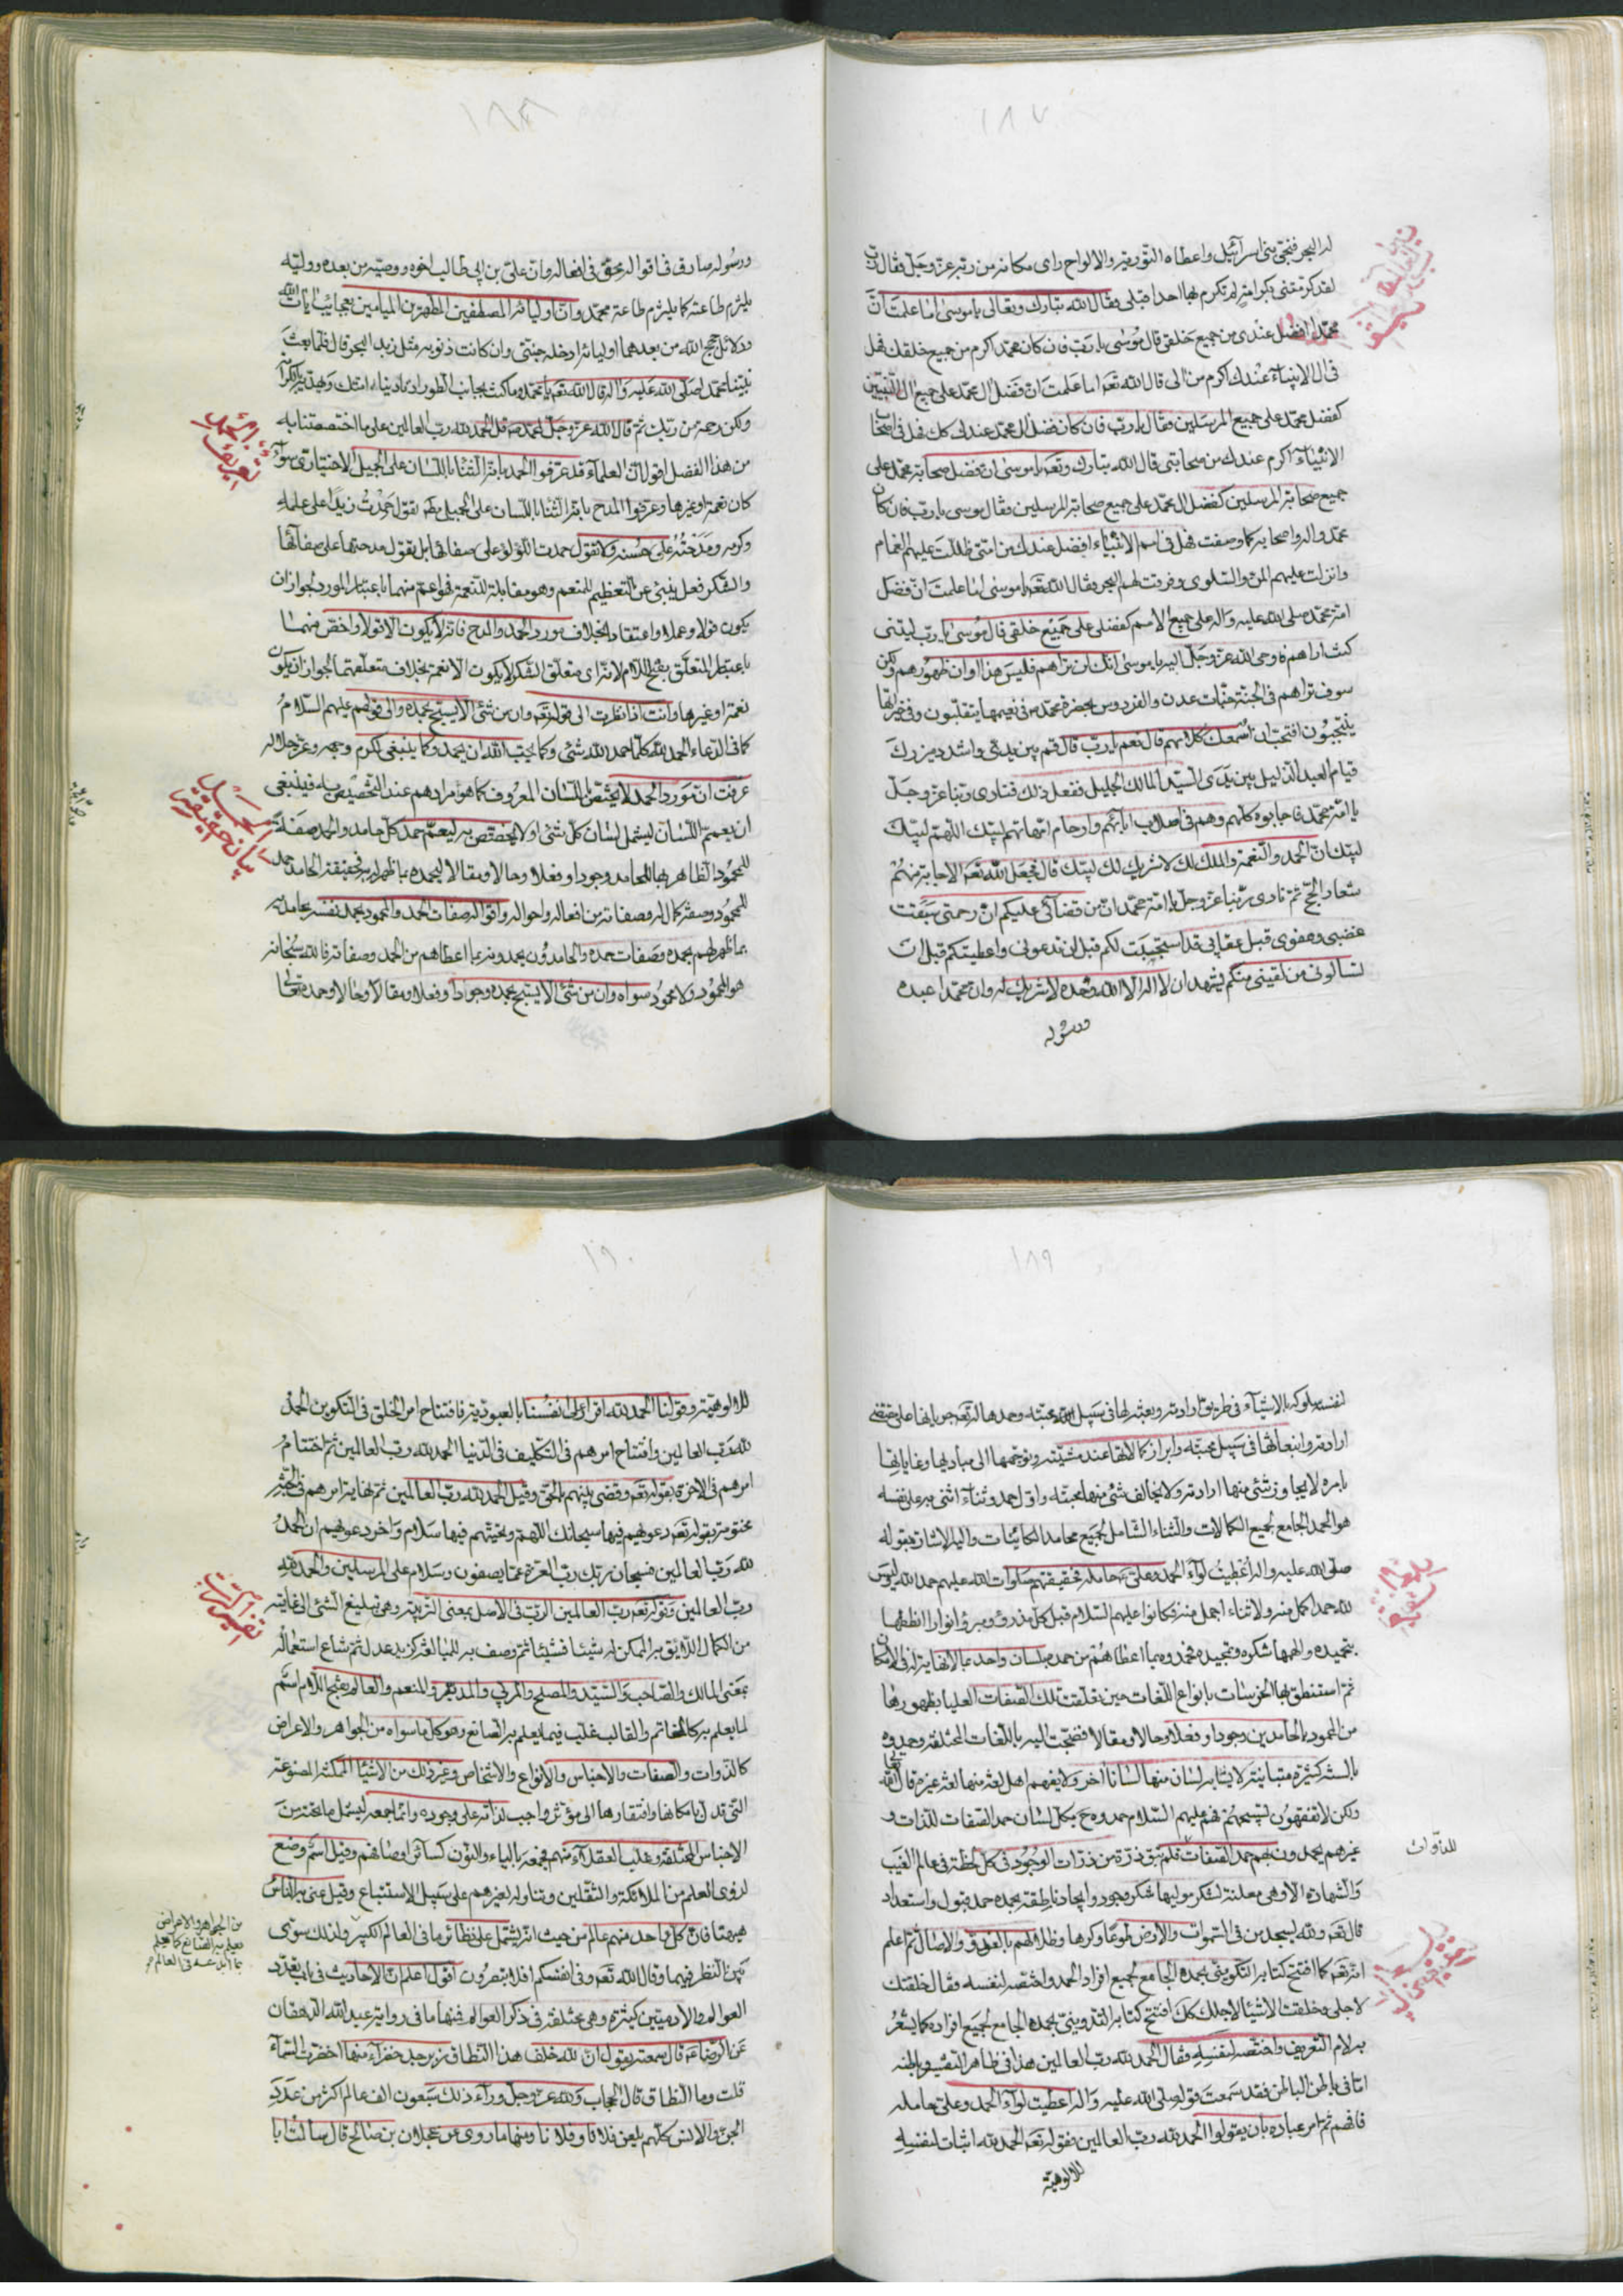 ١٨٧
له البحر فنجى بنى اسرآئيل واعطاه التّورية والالواح راى مكانه من ربّه عزّ وجلّ فقال ربّ
لقد كرمتنى بكرامة لم تكرم بها احدا قبلى فقال الله تبارك وتعالى يا موسى اما علمت انّ
محمّدا افضل عندى من جميع خلقى قال موسى يا ربّ فان كان محمّد اكرم من جميع خلقك فهل
فى ال الانبيآء عندك اكرم من الى قال الله تعه اما علمت انّ فضل ال محمّد على جميع ال النّبيّين
كفضل محمّد على جميع المرسلين فقال يا ربّ فان كان فضل ال محمّد عندك كك فهل فى اصحاب
الانبيآء اكرم عندك من صحابتى قال الله تبارك وتعه يا موسى انّ فضل صحابة محمّد على
جميع صحابة المرسلين كفضل ال محمّد على جميع صحابة المرسلين فقال موسى يا ربّ فان كان
محمّد واله واصحابه كما وصفت فهل فى امم الانبيآء افضل عندك من امتى ظللت عليهم الغمام
وانزلت عليهم المنّ والسّلوى وفرقت لهم البحر فقال الله تعه يا موسى اما علمت انّ فضل
امّة محمّد صلى الله عليه واله على جميع الامم كفضلى على جميع خلقى قال موسى يا ربّ ليتنى
كنت اراهم فاوحى الله عزّ وجلّ اليه يا موسى انّك لن تراهم فليس هذا اوان ظهورهم ولكن
سوف تراهم فى الجنّة جنّات عدن والفردوس بحضرة محمّد ص فى نعيمها يتقلّبون وفى خيراتها
يتبجّحون افتحبّ ان اسمعك كلامهم قال نعم يا ربّ قال قم بين يدىّ واشدد ميزرك
قيام العبد الذّليل بين يدى السيّد المالك الجليل ففعل ذلك فنادى ربّنا عزّ وجلّ
يا امّة محمّد فاجابوه كلّهم وهم فى اصلاب ابآئهم وارحام امّهاتهم لبّيك اللّهمّ لبّيك
لبّيك انّ الحمد والنّعمة والملك لك لا شريك لك لبّيك قال فجعل الله تعه الاجابة منهم
شعار الحجّ ثمّ نادى ربّنا عزّ وجلّ يا امّة محمّد انّ من قضائى عليكم انّ رحمتى سبقت
غضبى وعفوى قبل عقابى قد استجبت لكم قبل ان تدعونى واعطيتكم قبل ان
تسالونى من لقينى منكم يشهد ان لا اله الّا الله وحده لا شريك له وانّ محمّدا عبده
ورسوله
١٨٨
ورسوله صادق فى اقواله محقّ فى افعاله وانّ علىّ بن ابى طالب اخوه ووصيّه من بعده ووليّه
يلتزم طاعته كما يلتزم طاعة محمّد وانّ اوليائه المصطفين المطهّرين الميامين بعجايب ايات الله
ودلائل حجج الله من بعدهما اوليائه ادخله جنّتى وان كانت ذنوبه مثل زبد البحر قال فلمّا بعث
نبيّنا محمّد صلّى الله عليه واله قال الله تعه يا محمّد وما كنت بجانب الطّور اذ نادينا امّتك بهذه الكرامة
ولكن رحمة من ربّك ثم قال الله عزّ وجلّ لمحمّد ص قل الحمد لله ربّ العالمين على ما اختصصتنا به
تعريف الحمد
من هذا الفضل اقول انّ العلمآء قد عرّفوا الحمد بانّه الثّنآء باللّسان على الجميل الاختيارى سوآء
كان نعمة او غيرها وعرّفوا المدح بانّه الثّنآء باللّسان على الجميل مطلقا تقول حمدت زيدا على علمه
وكرمه ومدحته على حسنه ولا تقول حمدت اللّؤلؤ على صفائها بل تقول مدحتها على صفآئها
والشّكر فعل ينبئ عن التّعظيم للمنعم وهو مقابلة للنّعمة فهو اعمّ منهما باعتبار المورد لجواز ان
يكون قولا وعملا واعتقادا بخلاف مورد الحمد والمدح فانّه لا يكون الّا قولا واخصّ منهما
باعتبار المتعلّق بفتح اللّام لانّه اى متعلّق الشّكر لا يكون الّا نعمة بخلاف متعلّقهما لجواز ان يكون
نعمة او غيرها وانت اذا نظرت الى قوله تعه وان من شئ الّا يسبّح بحمده والى قولهم عليهم السّلام
كما فى الدّعاء الحمد لله كلّما حمد الله شئ وكما يحبّ الله ان يحمد وكما ينبغى لكرم وجهه وعزّ جلاله
بيان حقيقة الحمد
عرفت انّ مورد الحمد لا يختصّ باللّسان المعروف كما هو مرادهم عند التّخصيص به فينبغى
ان يعمّم اللّسان ليشمل لسان كلّ شئ او لا يخصّص به ليعمّ حمد كلّ حامد والحمد صفة
للمحمود الظّاهر بها للحامد وجودا وفعلا وحالا ومقالا ليحمده بما ظهر له به فحقيقة الحامد حمد
للمحمود وصفة كمال له وصفاته من افعاله واحواله واقواله صفات الحمد والمحمود يحمد نفسه بحامديه
بما ظهر لهم بحمده وصفات حمده والحامدون يحمدونه بما اعطاهم من الحمد وصفاته فالله سبحانه
هو المحمود ولا محمود سواه وان من شئ الّا يسبّح بحمده وجودا وفعلا ومقالا وحالا وحمده تعالى
١٨٩
لنفسه سلوكه بالاشيآء فى طريق ارادته وبعثه لها فى سبيل محبّته وحمدها له تعه جريانها على مقتضى
ارادته وانبعاثها فى سبيل محبّته وابراز كمالاتها عند مشيّته وتوجّهها الى مباديها وغاياتها
بامره لا يجاوز شئ منها ارادته ولا يخالف شئ منها محبّته واوّل حمد وثنآء اثنى به على نفسه
هو الحمد الجامع لجميع الكمالات والثناء الشّامل لجميع محامد الكائنات واليه الاشارة بقوله
صلّى الله عليه واله اعطيت لوآء الحمد وعلىّ حامله فحقيقتهم صلوات الله عليهم حمد لله ليس
لله حمد اكمل منه ولا ثناء اجمل منه فكانوا عليهم السّلام قبل كلّ مذروء ومبروء انوارا انطقها
بتحميده والهمها شكره وتمجيده فحمدوه بما اعطاهم من حمده بلسان واحد بما لا نهاية له فى الامكان
ثمّ استنطق بها الخرسات بانواع اللّغات حين تعلّقت تلك الصّفات العليا بظهورها
من المحمود بالحامدين وجودا وفعلا وحالا ومقالا فضجّت اليه باللّغات المختلفة وحمدوه
بالسنة كثيرة متباينة لا يشابه لسان منها لسانا اخر ولا يفهم اهل لغة منها لغة غيرهم قال الله تعالى
ولكن لا تفقهون تسبيحهم فهم عليهم السّلام حمدوه بكلّ لسان حمد الصّفات للذّات و
للذّوات
غيرهم يحمدونه بهم حمد الصّفات فلم تبق ذرّة من ذرّات الوجود فى كلّ لحظة فى عالم الغيب
والشّهادة الّا وهى معلنة لشكر موليها شكر وجود وايجاد ناطقة بحمده حمد قبول واستعداد
قال تعه ولله يسجد من فى السّموات والارض طوعا وكرها وظلالهم بالغدوّ والاصال ثمّ اعلم
انّه تعه كما افتتح كتابه التّكوينى بحمده الجامع لجميع افراد الحمد واختصّه لنفسه وقال خلقتك
لاجلى وخلقت الاشيآء لاجلك كك افتتح كتابه التّدوينى بحمده الجامع لجميع افراده كما يشعر
به لام التّعريف واختصّه لنفسه فقال الحمد لله ربّ العالمين هذا فى ظاهر التّفسير وباطنه
امّا فى باطن الباطن فقد سمعت قوله صلّى الله عليه واله اعطيت لوآء الحمد وعلىّ حامله
فافهم ثمّ امر عباده بان يقولوا الحمد لله ربّ العالمين فقوله تعه الحمد لله اثبات لنفسه
للالوهيّة
١٩٠
للالوهيّة وقولنا الحمد لله اقرار على انفسنا بالعبوديّة فافتتاح امر الخلق فى التّكوين الحمد
لله ربّ العالمين وافتتاح امرهم فى التّكليف فى الدّنيا الحمد لله ربّ العالمين ثمّ اختتام
امرهم فى الاخرة بقوله تعه وقضى بينهم بالحقّ وقيل الحمد لله ربّ العالمين ثمّ نهاية امرهم فى الجنّة
مختومة بقوله تعه دعويهم فيها سبحانك اللّهمّ وتحيّتهم فيها سلام واخر دعويهم ان الحمد
لله ربّ العالمين فسبحان ربّك ربّ العزّة عمّا يصفون وسلام على المرسلين والحمد لله
تفسير الربّ
ربّ العالمين وقوله تعه ربّ العالمين الربّ فى الاصل بمعنى التّربية وهى تبليغ الشّئ الى غايته
من الكمال اللّايق به الممكن له شيئا فشيئا ثمّ وصف به للمبالغة كزيد عدل ثمّ شاع استعماله
بمعنى المالك والصّاحب والسّيّد والمصلح والمربّى والمدبّر والمنعم والعالم بفتح اللّام اسم
لما يعلم به كالخاتم والقالب غلب فيما يعلم به الصّانع وهو كلّ ما سواه من الجواهر والاعراض
كالذّوات والصّفات والاجناس والانواع والاشخاص وغير ذلك من الاشيآء الممكنة المصنوعة
الّتى تدلّ بامكانها وافتقارها الى مؤثّر واجب لذاته على وجوده وانّما جمعه ليشمل ما تحته من
الاجناس المختلفة وغلّب العقلآء منهم فجمعه بالياء والنّون كسائر اوصافهم وقيل اسم وضع
لذوى العلم من الملائكة والثّقلين وتناوله لغيرهم على سبيل الاستتباع وقيل عنى به النّاس
من الجواهر والاعراض
يعلم به الصّانع كما يعلم
بما ابدعه فى العالم
هيهنا فانّ كلّ واحد منهم عالم من حيث انّه يشتمل على نظائر ما فى العالم الكبير ولذلك سوّى
بين النّظر فيهما وقال الله تعه وفى انفسكم افلا تبصرون اقول اعلم انّ الاحاديث فى باب تعدّد
العوالم والادميّين كثيرة وهى مختلفة فى ذكر العوالم فمنها ما فى رواية عبد الله الدّهقان
عن الرّضا ع قال سمعته يقول انّ لله خلف هذا النّطاق زبرجد خضرآء منها اخضرّت السّمآء
قلت وما النّطاق قال الحجاب ولله عزّ وجلّ ورآء ذلك سبعون الف عالم اكثر من عدد
الجنّ والانس كلّهم يلعن فلانا وفلانا ومنها ما روى عن عجلان بن صالح قال سالت ابا